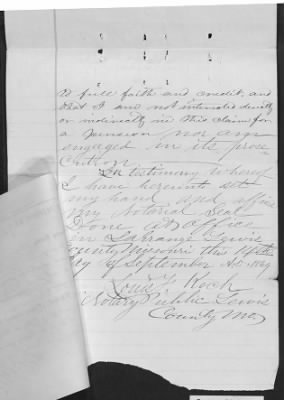 to full faith and credit, and
that I am not interested directly
or indirectly in this claim for
a pension nor am
engaged in its prose-
cution.
In testimony whereof
I have hereunto set
my hand and affix
my Notarial Seal
Done at office
in LaGrange Lewis
County Missouri this 14th
day of September AD.
Louis F. Koch
Notary Public Lewis
County Mo.